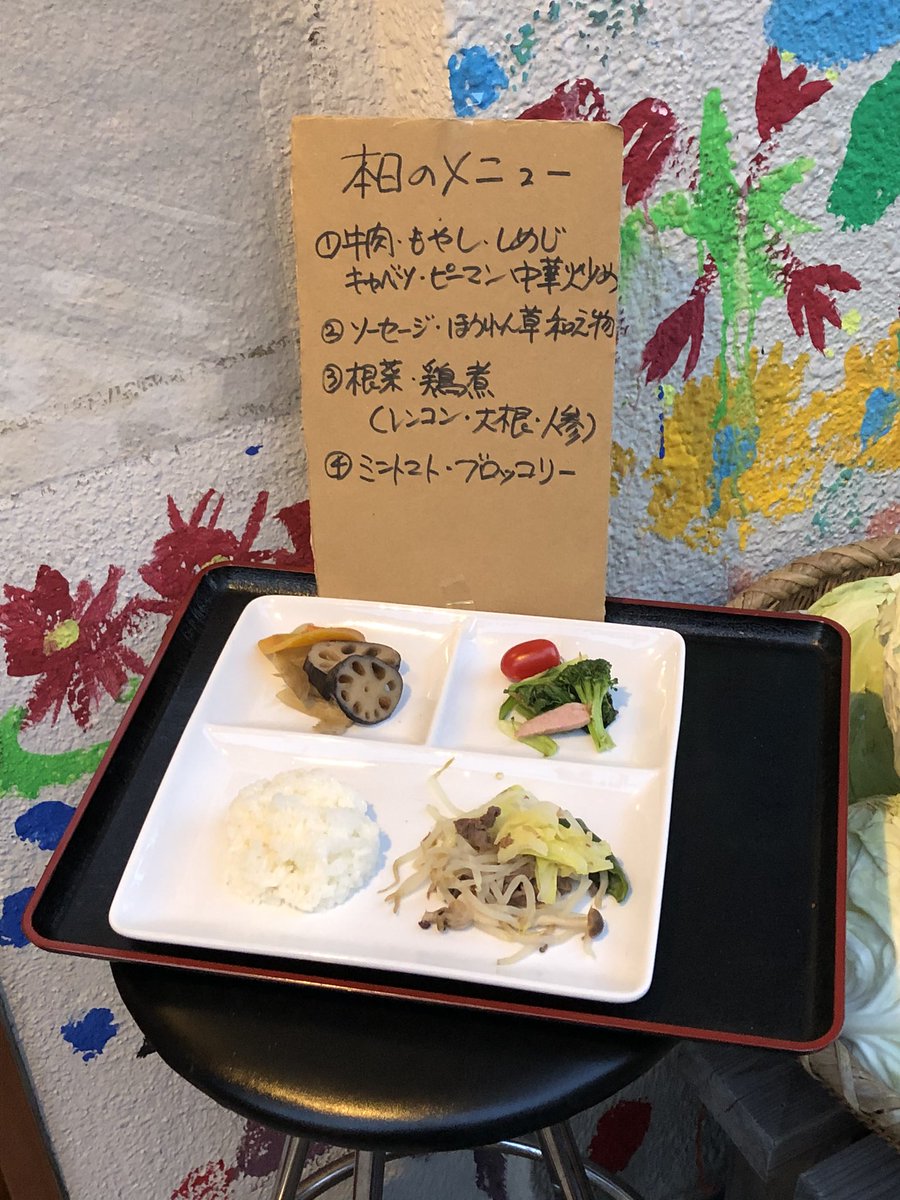 本日のメニュー
①牛肉・もやし・しめじ
キャベツ・ピーマン中華炒め
②ソーセージ・ほうれん草和え物
③根菜・鶏煮
(レンコン・大根・人参)
④ミニトマト・ブロッコリー